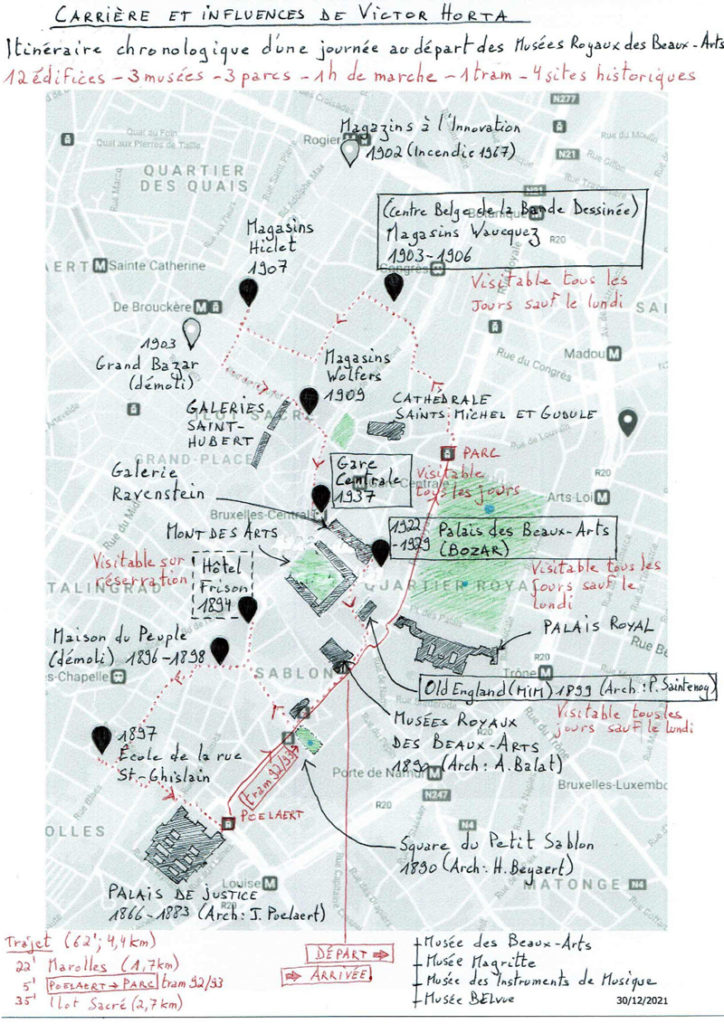 CARRIÈRE ET INFLUENCES DE VICTOR HORTA
Itinéraire chronologique d'une journée au départ des Musées Royaux des Beaux-Arts
12 édifices - 3 musées - 3 parcs - 1h de marche - 1 tram - 4 sites historiques
N277
Quai au Foin
Quai aux Pierres de Taille
QUARTIER
DES QUAIS
Rogier
Magazins à l'Innovation
1902 (Incendie 1967)
Rue du Moulin
N21
N21
(Centre Belge de la Bande Dessinée)
Magasins Waucquez
1903-1906
R20
Congrès
Visitable tous les
jours sauf le lundi
Magasins
Hiclet
1907
Sainte Catherine
De Brouckère
1903
Grand Bazar
(démoli)
Magasins
Wolfers
1909
Rue du Congrès
Madou
CATHÉDRALE
SAINTS MICHEL ET GUDULE
GALERIES
SAINT-
HUBERT
ILOT SACRÉ
GRAND-PLACE
PARC
Visitable
tous les jours
Gare
Centrale
1937
R20
Arts-Loi
Galerie
Ravenstein
Bruxelles-Central
1922
-1929
Palais des Beaux-Arts
(BOZAR)
MONT DES ARTS
Visitable sur
réservation
Hôtel
Frison
1894
TALINGRAD
QUARTIER ROYA
Visitable tous les
jours sauf le
lundi
PALAIS ROYAL
Maison du Peuple
(démoli) 1896-1898
s-Chapelle
SABLON
Trône
Old England (MIM) 1899 (Arch: P. Saintenoy)
Visitable tous les
jours sauf le lundi
MUSÉES ROYAUX
DES BEAUX-ARTS
(Arch: A. Balat)
1897
École de la rue
St-Ghislain
tram 92/93
Porte de Namur
N247
Bruxelles-Luxembo
R20
POELAERT
N4
OLLES
Square du Petit Sablon
1890 (Arch: H. Beyaert)
Louise
MATONGE
N4
PALAIS DE JUSTICE
1866-1883 (Arch: J. Poelaert)
Trajet (62'; 4,4km)
22' Marolles (1,7km)
5' POELAERT → PARC tram 92/93
35' Ilot Sacré (2,7km)
DÉPART
ARRIVÉE
Musée des Beaux-Arts
Musée Magritte
Musée des Instruments de Musique
Musée BELvue
30/12/2021